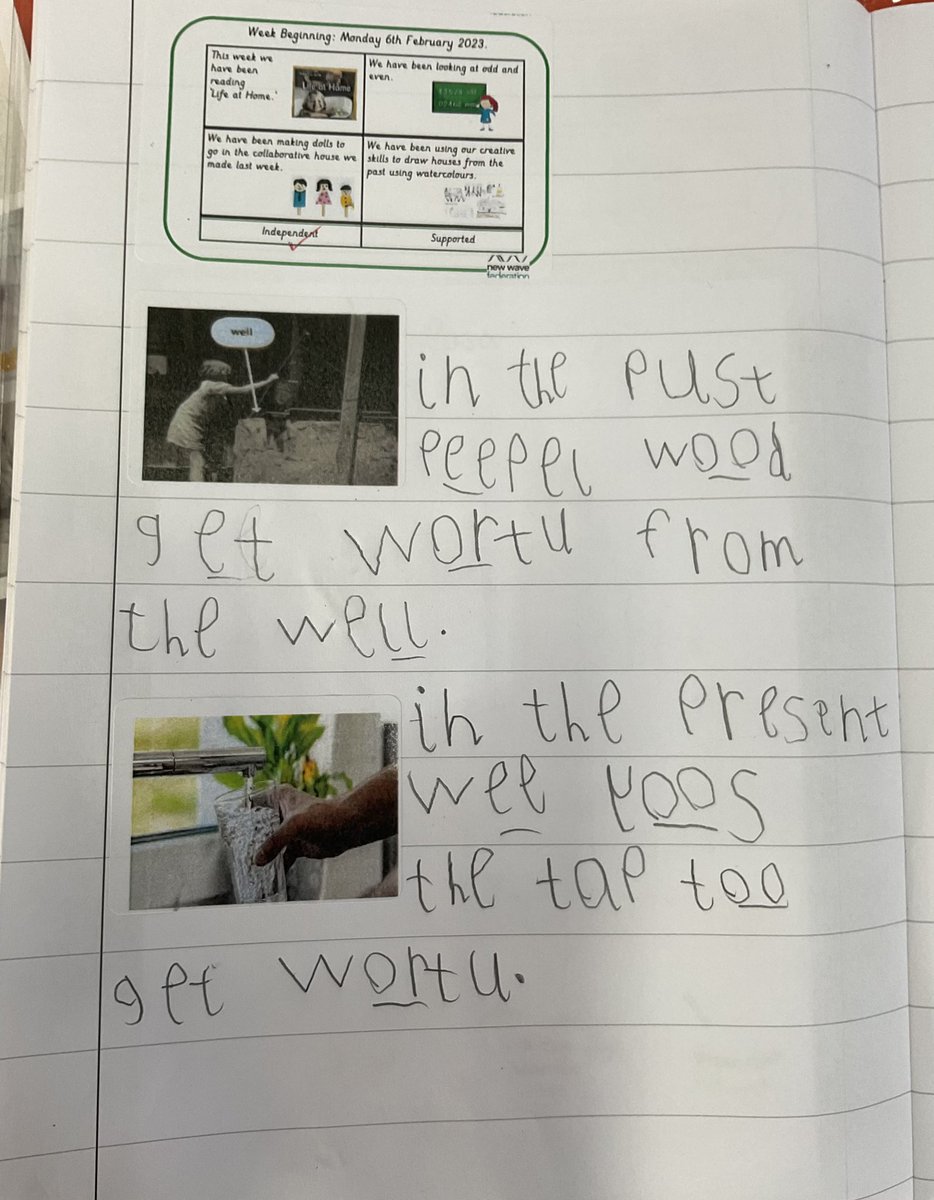 Week Beginning: Monday 6th February 2023.
This week we
have been
reading
'Life at Home.'
Life at Home
We have been looking at odd and
even.
We have been making dolls to
go in the collaborative house we
made last week.
We have been using our creative
skills to draw houses from the
past using watercolours.
Independent
Supported
new wave
federation
well
in the pust
peepel wood
get wortu from
the well.
in the present
wee yoos
the tap too
get wortu.